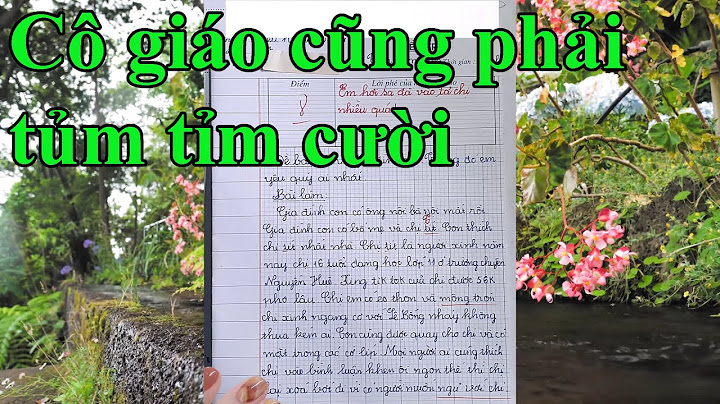 Cô giáo cũng phải
tủm tỉm cười
Điểm
Lời phê của
8
Em hơi sa đà vào tả chị
nhiều quá!
yêu quý ai nhất.
Bài làm
Gia đình con có ông nội bà nội mất rồi.
Gia đình con có bố mẹ và chị từ. Con thích
chị từ nhất nhà. Chị từ là người xinh năm
nay chị 16 tuổi đang học lớp 11 ở trường chuyên
Nguyễn Huệ. Kênh tik tok của chị được 56K
pho lâu. Chị em có eo thon và mông tròn
chị xinh ngang cơ với Lê Bống nhảy không
thua kém ai. Con cũng được quay cho chị và có
mặt trong các cờ líp. Mọi người ai cũng thích
chị vào bình luận khen ôi ngon thế thì chị
lại xóa bởi đi vì có người muốn ngủ với chị